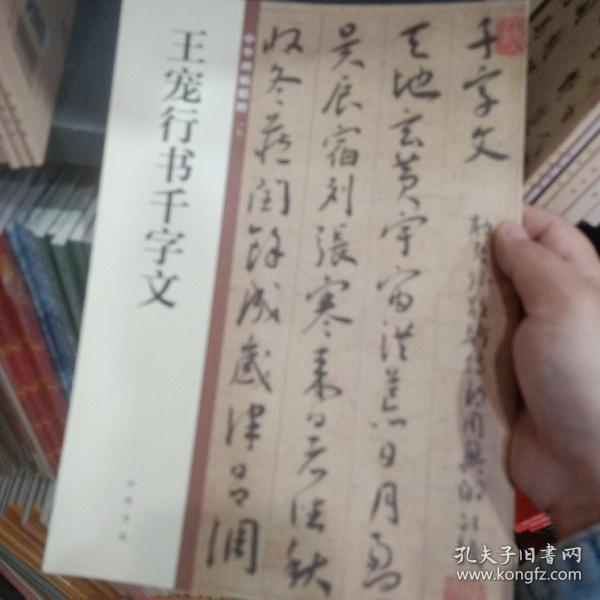 王宠行书千字文
中华碑帖精粹
千字文
天地玄黄宇宙洪荒日月盈
昃辰宿列张寒来暑往秋
收冬藏闰馀成岁律吕调
中华书局
孔夫子旧书网
www.kongfz.com